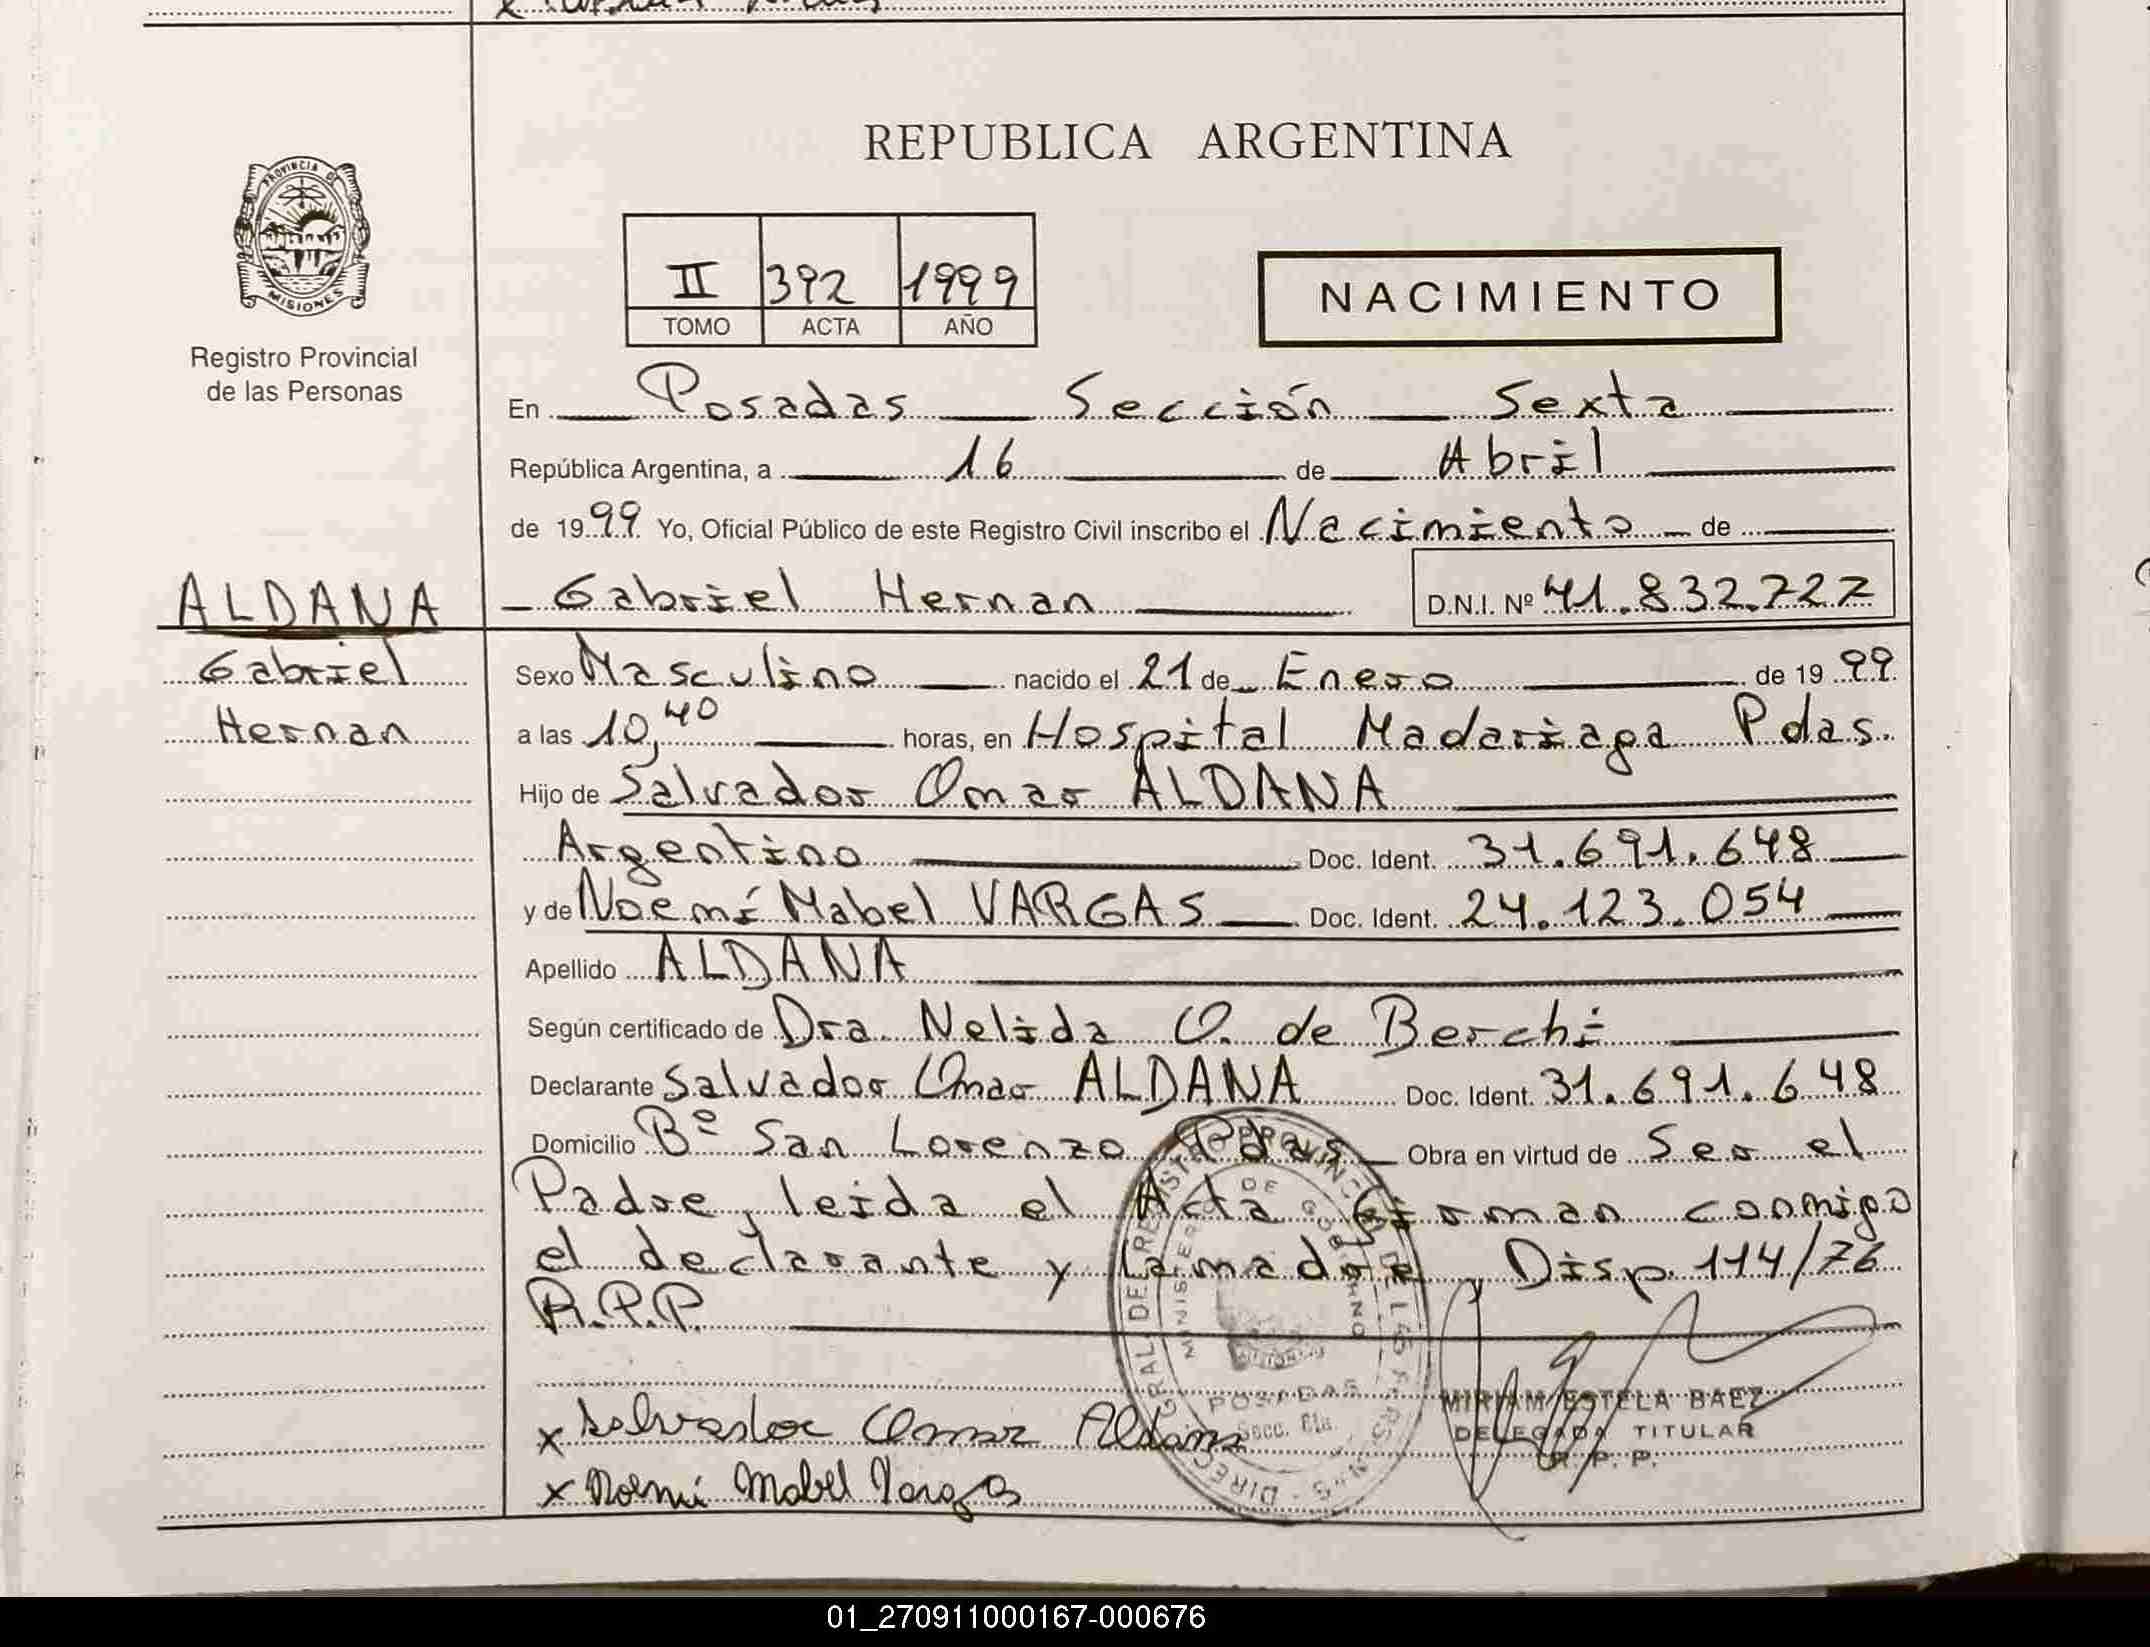 REPUBLICA ARGENTINA
PROVINCIA DE
MISIONES
Registro Provincial
de las Personas
II 392 1999
TOMO ACTA AÑO
NACIMIENTO
En Posadas Sección Sexta
República Argentina, a 16 de Abril
de 1999 Yo, Oficial Público de este Registro Civil inscribo el Nacimiento de
ALDANA
Gabriel
Hernan
Gabriel Hernan D.N.I. Nº 41.832.727
Sexo Masculino nacido el 21 de Enero de 1999
a las 10,40 horas, en Hospital Madariaga Pdas.
Hijo de Salvador Omar ALDANA
Argentino Doc. Ident. 31.691.648
y de Noemí Mabel VARGAS Doc. Ident. 24.123.054
Apellido ALDANA
Según certificado de Dra. Nelida O. de Berchi
Declarante Salvador Omar ALDANA Doc. Ident. 31.691.648
Domicilio Bº San Lorenzo Pdas Obra en virtud de Ser el
Padre, leida el Acta firman conmigo
el declarante y la madre, Disp. 114/76
R.P.P.
MINISTERIO DE GOBIERNO
POSADAS
Secc. 6ta.
MIRIAM ESTELA BAEZ
DELEGADA TITULAR
R. P. P.
x Salvador Omar Aldana
x Noemí Mabel Vargas
01_270911000167-000676